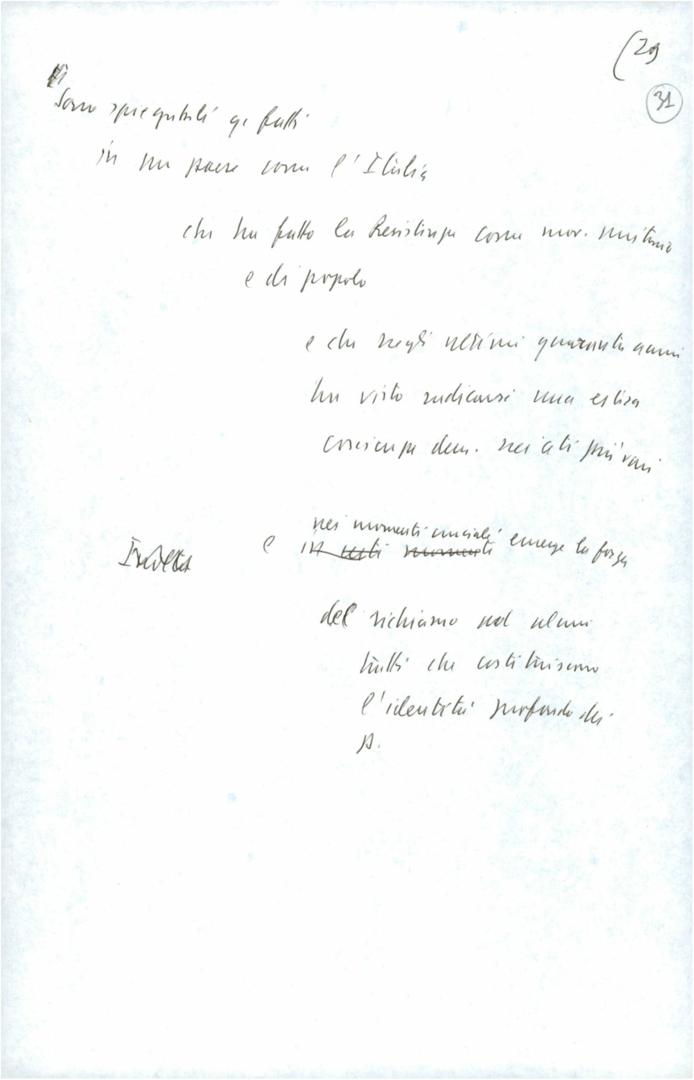 (29
31
Sono spiegabili qs fatti
in un paese come l'Italia
che ha fatto la Resistenza come mov. unitario
e di popolo
e che negli ultimi quaranta anni
ha visto radicarsi una estesa
coscienza dem. nei ceti più vari
nei momenti cruciali
e in certi momenti emerge la forza
del richiamo ad alcuni
tratti che costituiscono
l'identità profonda dei
p.